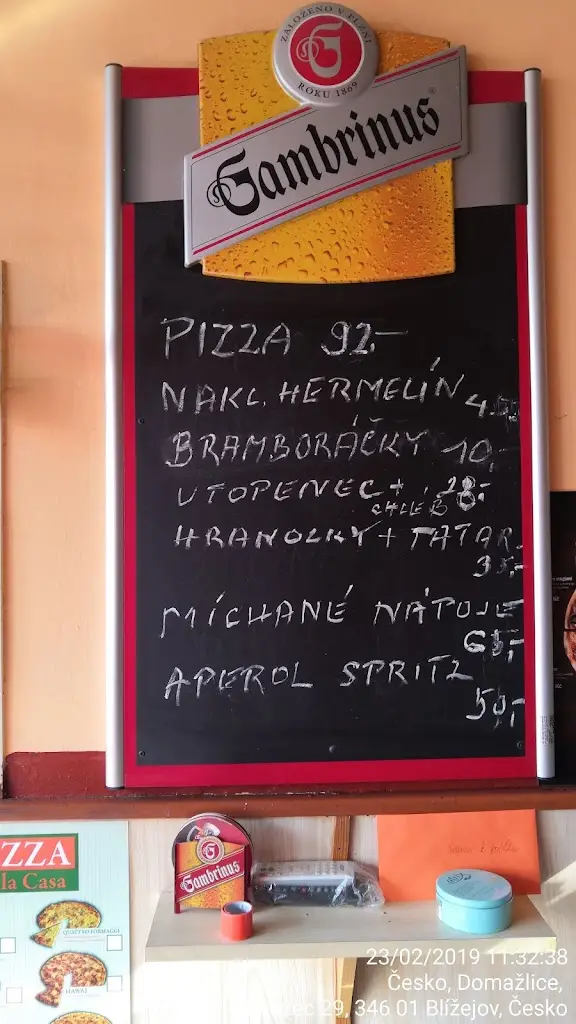 ZALOŽENO V PLZNI
ROKU 1869
Gambrinus
PIZZA 92,-
NAKL. HERMELÍN
BRAMBORÁČKY 10,-
UTOPENEC + 28,-
CHLÉB
HRANOLKY + TATAR.
35,-
MÍCHANÉ NÁPOJE
65,-
APEROL SPRITZ
50,-
ZZA
la Casa
QUATTRO FORMAGGI
HAWAI
Gambrinus
23/02/2019 11:32:38
Česko, Domažlice,
29, 346 01 Blížejov, Česko